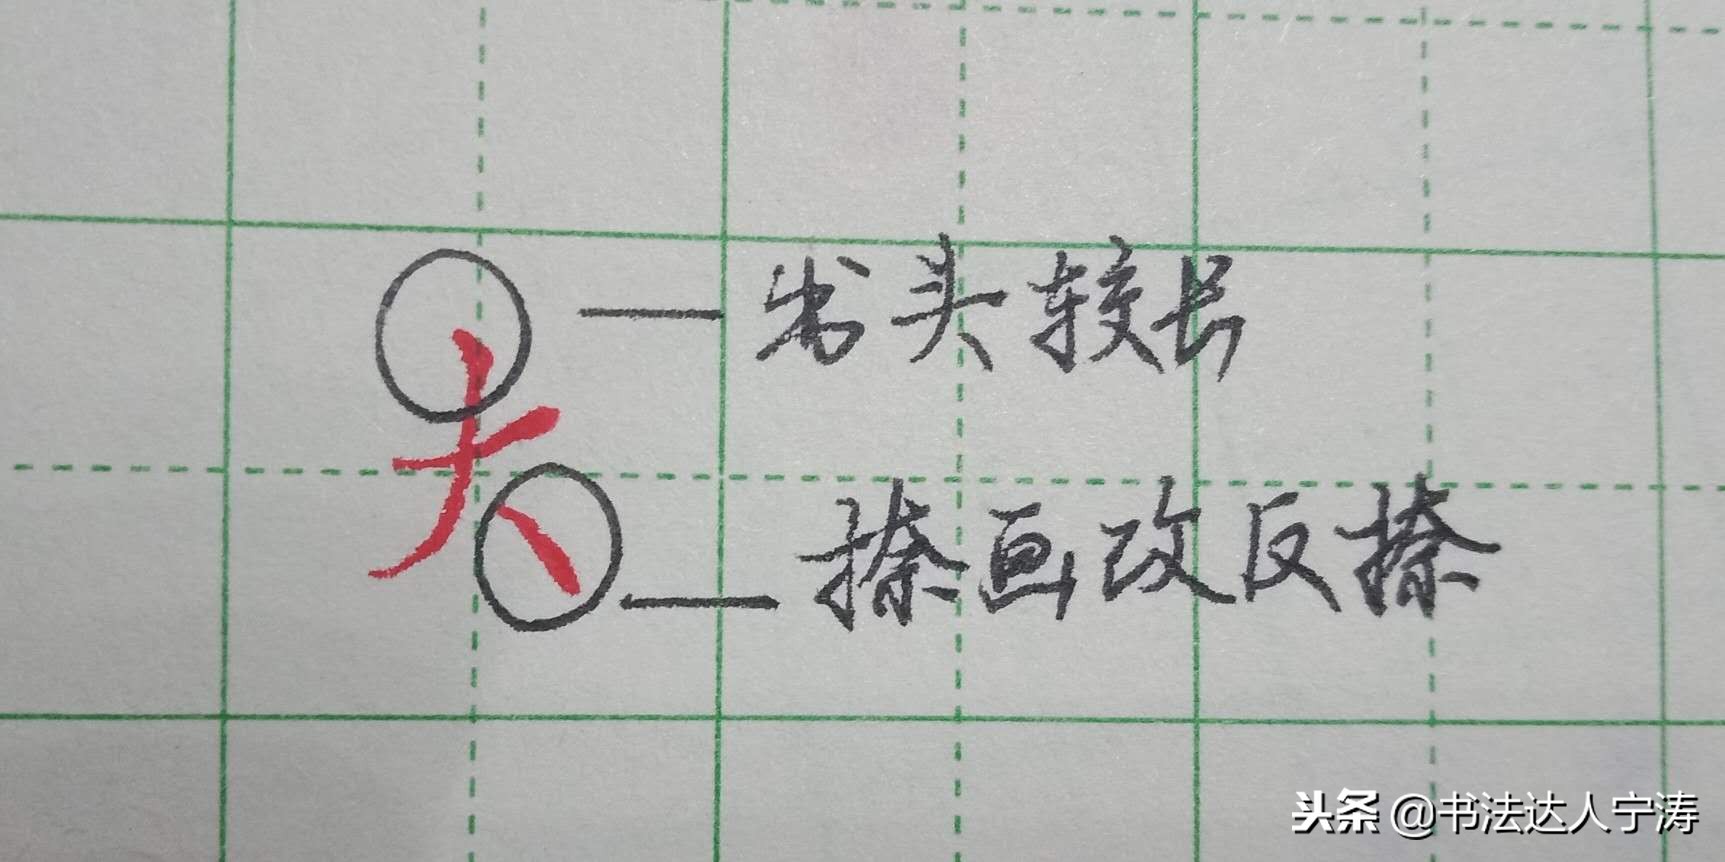 大
出头较长
捺画改反捺
头条 @书法达人宁涛